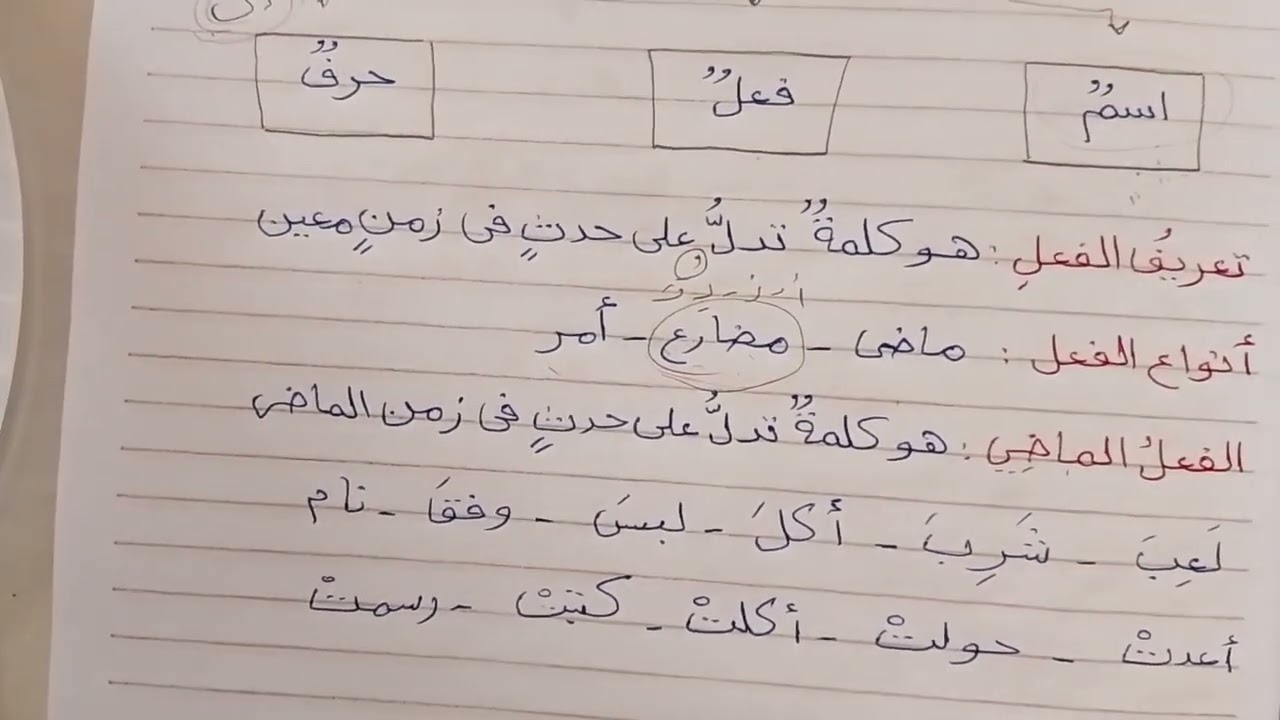 اسمٌ فعلٌ حرفٌ
تعريفُ الفعلِ : هو كلمةٌ تدلُّ على حدثٍ فى زمنٍ معين
أنواع الفعل : ماضى - مضارَع - أمر
الفعلُ الماضِي : هو كلمةٌ تدلُّ على حدثٍ فى زمن الماضى
لَعِبَ - شَرِبَ - أكلَ - لبسَ - وفقَ - نام
أعدتْ - حولتْ - أكلتْ - كتبتْ - رسمتْ